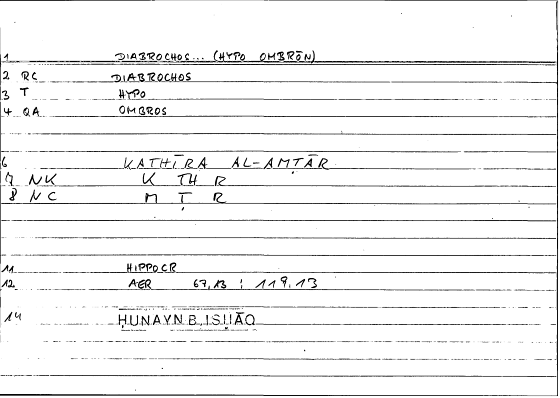 1 DIABROCHOS... (HYPO OMBRŌN)
2 RC DIABROCHOS
3 T HYPO
4 QA OMBROS
6 KATHĪRA AL-AMṬĀR
7 NK K TH R
8 NC M Ṭ R
11 HIPPOCR
12 AER 67,13 ; 119,13
14 ḤUNAYN B. ISḤĀQ